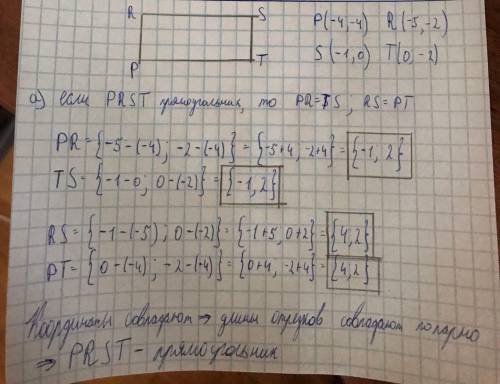 R S P(-4,-4) R(-5,-2)
P T S(-1,0) T(0,-2)
а) если PRST прямоугольник, то PR=TS; RS=PT
PR={-5-(-4); -2-(-4)}={-5+4, -2+4}={-1, 2}
TS={-1-0; 0-(-2)}={-1,2}
RS={-1-(-5); 0-(-2)}={-1+5, 0+2}={4,2}
PT={0-(-4); -2-(-4)}={0+4, -2+4}={4,2}
Координаты совпадают ⇒ длины отрезков совпадают попарно
⇒ PRST - прямоугольник